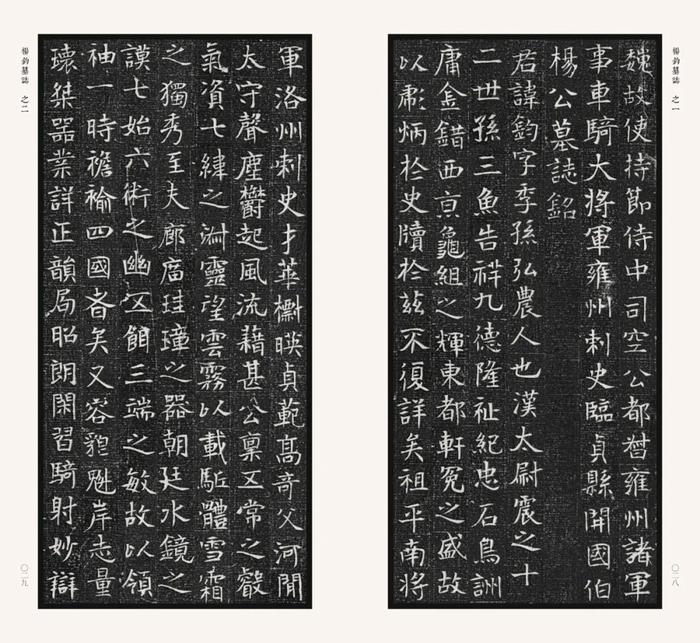 楊鈞墓誌 之一
魏故使持節侍中司空公都督雍州諸軍
事車騎大將軍雍州刺史臨貞縣開國伯
楊公墓誌銘
君諱鈞字季孫弘農人也漢太尉震之十
二世孫三魚告祥九德隆祉紀忠石鳥詶
庸金錯西京龜組之輝東都軒冕之盛故
以彪炳於史牘於茲不復詳矣祖平南將
〇二八
楊鈞墓誌 之二
軍洛州刺史才華櫹暎貞範高奇父河間
太守聲塵欝起風流藉甚公稟五常之叡
氣資七緯之渊靈望雲霧以載駈體雪霜
之獨秀至夫廊廟珪璋之器朝廷水鏡之
謨七始六術之幽㝎五館三端之敏故以領
袖一時襜褕四國者矣又容貌魁岸志量
瓌桀器業詳正韻局昭朗閑習騎射妙辯
〇二九